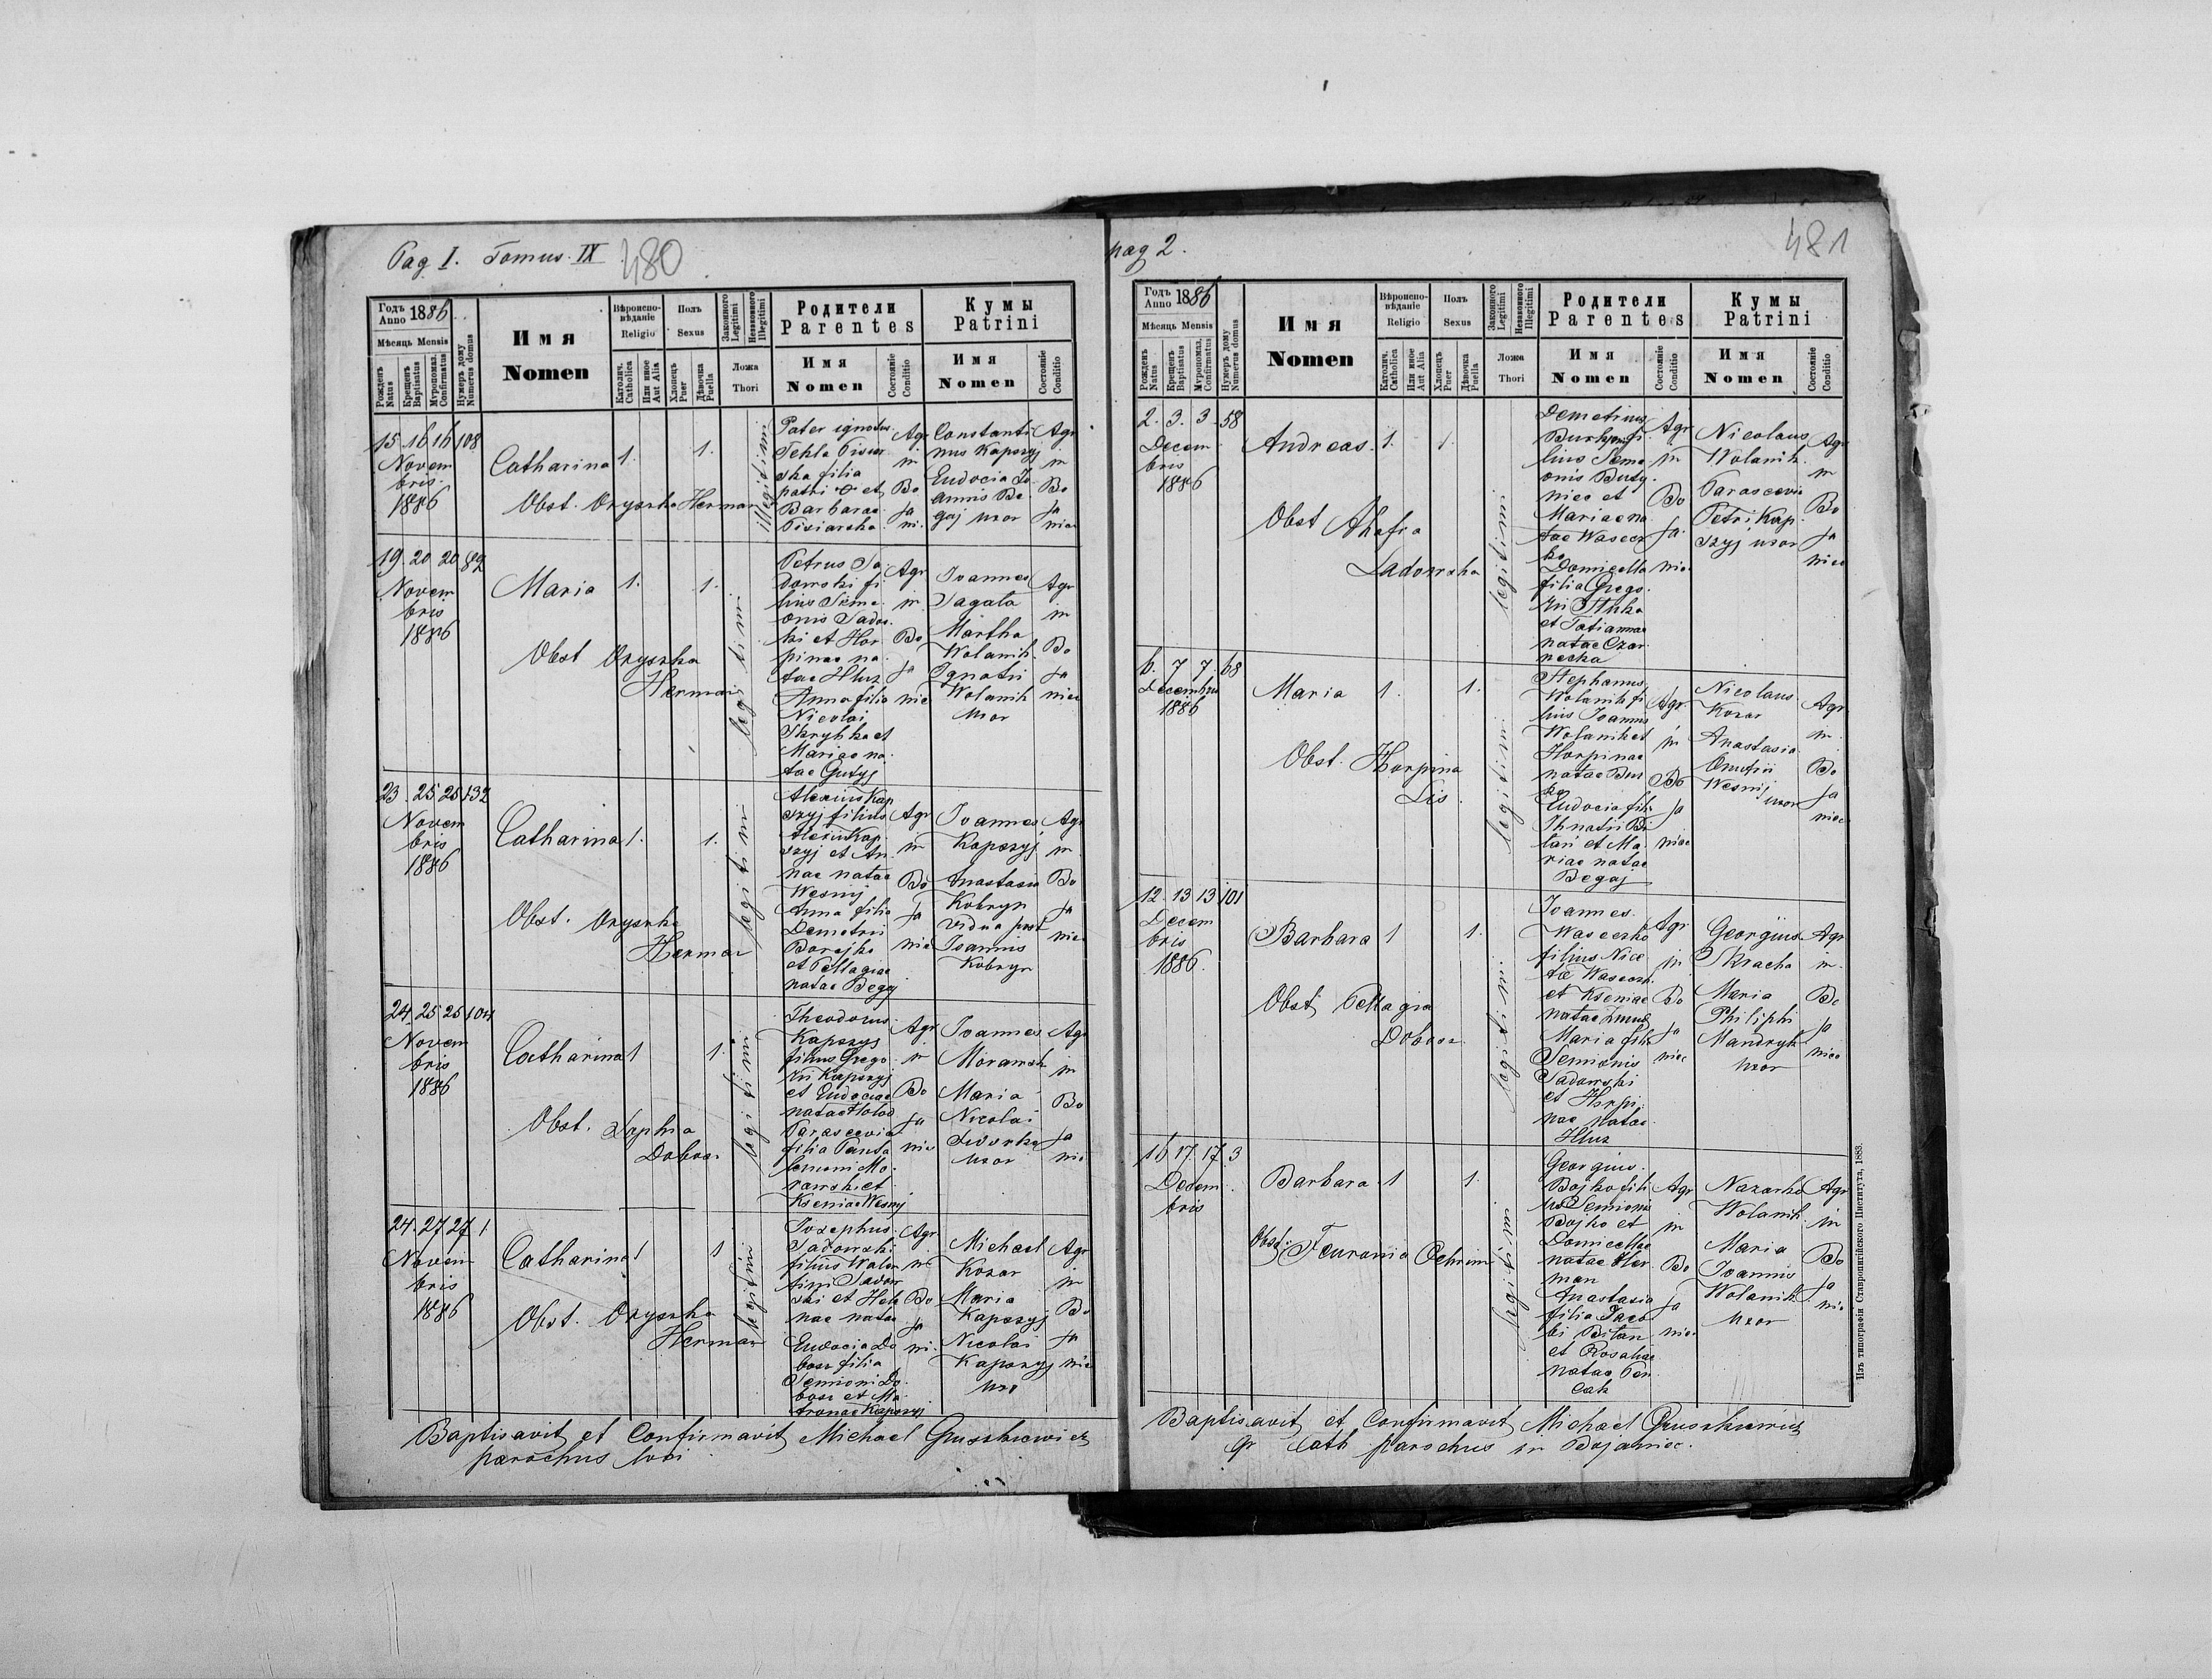 Pag I. Tomus IX 480
Годъ Anno 1886
Мѣсяць Mensis
Рожденъ Natus
Крещенъ Baptisatus
Мѵропомаз. Confirmatus
Нумеръ дому Numerus domus
Имя Nomen
Вѣроиспо-
вѣданіе
Religio
Католич. Catholica
Или иное Aut Alia
Полъ
Sexus
Хлопецъ Puer
Дѣвочка Puella
Законного Legitimi
Незаконного Illegitimi
Ложа
Thori
Родители
Parentes
Имя
Nomen
Состояніе Conditio
Кумы
Patrini
Имя
Nomen
Состояніе Conditio
15 16 16 108
Novem
bris
1886
Catharina 1. 1.
Obst. Oryszka Herman
illegitimi
Pater ignotus
Tekla Pisiar
ska filia
patri et
Barbarae
Pisiarska
Agr
in
Bo
ja
ni.
Constanti
nus Kapszyj
Eudocia Jo
annis Be
gaj uxor
Agr
in
Bo
ja
niec
19 20 20 82
Novem
bris
1886
Maria 1. 1.
Obst Oryszka
Herman
legitimi
Petrus Sa
dowski fi
lius Seme
onis Sados
ki et Hor
pinae na
tae Hluz
Anna filia
Nicolai
Skrybka et
Mariae na
tae Gutyj
Agr
in
Bo
ja
niec
Joannes
Sagata
Martha
Wolanik
Ignatii
Wolanik
uxor
Agr
in
Bo
ja
niec
23 25 25 132
Novem
bris
1886
Catharina 1. 1.
Obst. Oryszka
Herman
legitimi
Alexius Kap
szyj filius
Alexii Kap
szyj et An
nae natae
Wesnij
Anna filia
Demetrii
Borejko
et Pellagiae
natae Begej
Agr
in
Bo
ja
niec
Joannes
Kapszyj
Anastasia
Kobryn
vidua post
Joannis
Kobryn
Agr
in
Bo
ja
niec
24 25 25 104
Novem
bris
1886
Catharina 1 1.
Obst. Sophia
Dobosz
legitimi
Theodorus
Kapszyj
filius Grego
rii Kapszyj
et Eudociae
natae Holod
Parascevia
filia Panta
lemoni Mo
rawski et
Kseniae Wesnij
Agr
in
Bo
ja
niec
Joannes
Morawsk
Maria
Nicolai
uxor
Agr
in
Bo
ja
nie
24. 27 27 1
Novem
bris
1886
Catharina 1 1
Obst. Oryszka
Herman
legitimi
Josephus
Sadowski
filius Walen
tini Sadow
ski et Hele
nae natae
Eudocia Do
bosz filia
Semioni Do
bosz et Ma
tronae Kapszyj
Agr
in
Bo
ja
ni.
Michael
Kozar
Maria
Kapszyj
Nicolai
Kapszyj
uxor
Agr
in
Bo
ja
nie
Baptisavit et Confirmavit Michael Gruszkiewicz
parochus loci
pag 2. 481
Годъ Anno 1886
Мѣсяць Mensis
Рожденъ Natus
Крещенъ Baptisatus
Мѵропомаз. Confirmatus
Нумеръ дому Numerus domus
Имя
Nomen
Вѣроиспо-
вѣданіе
Religio
Католич. Catholica
Или иное Aut Alia
Полъ
Sexus
Хлопецъ Puer
Дѣвочка Puella
Законного Legitimi
Незаконного Illegitimi
Ложа
Thori
Родители
Parentes
Имя
Nomen
Состояніе Conditio
Кумы
Patrini
Имя
Nomen
Состояніе Conditio
2. 3. 3 58
Decem
bris
1886
Andreas 1. 1.
Obst Ahafia
Sadowska
legitimi
Demetrius
lius Seme
onis Buty
niec et
Mariae na
tae Wasecz
ko
Domicella
filia Grego
rii Hluka
et Tatiannae
natae Czar
necka
Agr
in
Bo
ja
niec
Nicolaus
Wolanik
Parascevia
Petri Kap
szyj uxor
Agr
in
Bo
ja
niec
6. 7 7. 68
Decembris
1886
Maria 1. 1.
Obst. Horpina
Lis.
legitimi
Stephanus
Wolanik fi
lius Joannis
Wolanik et
Horpinae
natae Bur
ko
Eudocia filia
Ihnatii Bi
lan et Ma
riae natae
Begaj
Agr
in
Bo
ja
niec
Nicolaus
Kozar
Anastasia
Onufrii
Wesnij
uxor
Agr
in
Bo
ja
niec
12. 13 13 101
Decem
bris
1886.
Barbara 1 1.
Obst. Pellagia
Dobosz
legitimi
Joannes
Waseczko
filius Nice
tae Waseczk.
et Kseniae
natae Zmud
Maria filia
Semionis
Sadowski
et Horpi
nae natae
Hluz
Agr
in
Bo
ja
niec
Georgius
Skracha
Maria
Philiphi
Mandryk
uxor
Agr
in
Bo
ja
niec
16 17. 17. 3
Decem
bris
Barbara 1 1.
Obst. Fewronia Ochrim
legitimi
Georgius
Bojko fili
us Semionis
Bojko et
Domicellae
natae Her
man
Anastasia
filia Jaco
bi Bilan
et Rosaliae
natae Pen
cak
Agr
in
Bo
ja
niec
Nazarko
Wolanik
Maria
Joannis
Wolanik
uxor
Agr
in
Bo
ja
niec
Baptisavit et Confirmavit Michael Gruszkiewicz
gr Cath parochus in Bojaniec.
Изъ типографіи Ставропигійского Института, 1883.